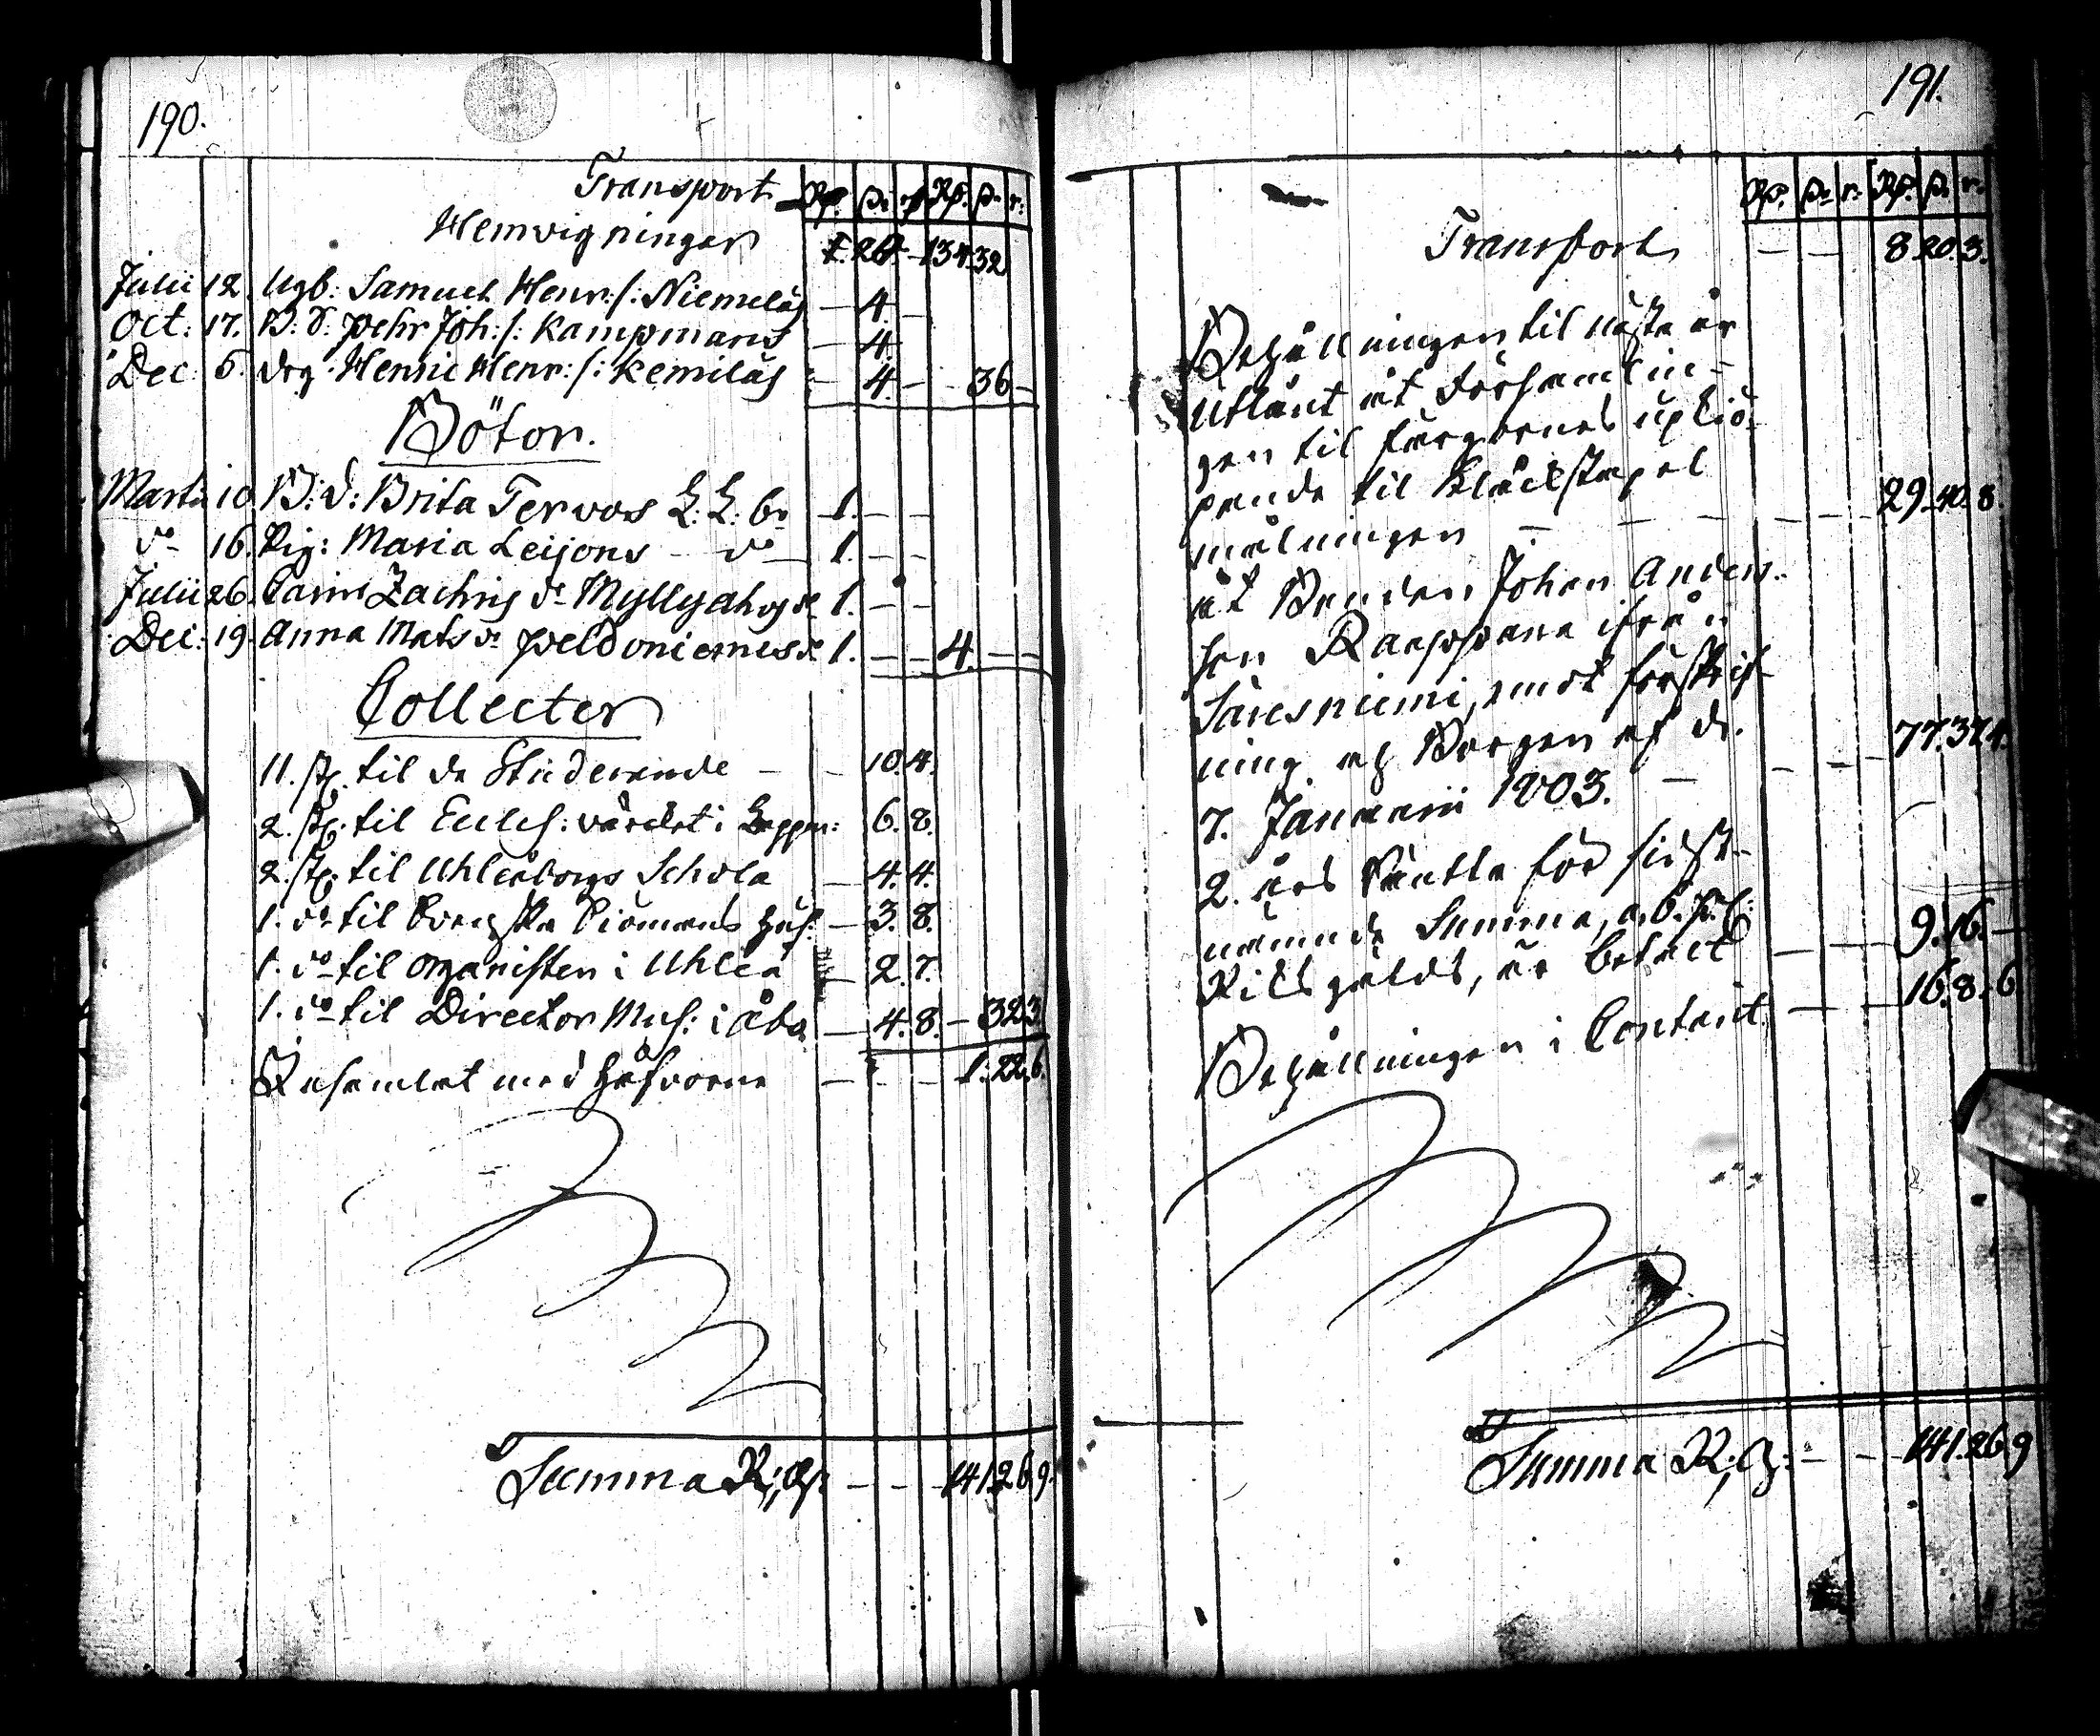 190.
Transport Rg. ß. r. Rg. ß. r:
Hemvigningar 1. 24. — 134. 32
Julii 12. Ugb: Samuel Henr: s: Niemeläs — 4. —
Oct: 17. B: S: Pehr Joh: s: Kampmans — 4.
Dec: 6. Drg: Henric Henr: s: Kemiläs — 4. — — 36 —
Böter.
Martii 10 B: d: Brita Tervos L: L: br 1. — —
do 16. Pig: Maria Leijons — do — 1. — —
Julii 26. Carin Zachris dr Myllyahosk 1. — —
Dec: 19. Anna Mats dr Peldoniemesk 1. — — 4. — —
Collecter
11. st. til de Studerande — — 10. 4.
2. st. til Eccles: värdet i Lappm: 6. 8.
2. st. til Uhleåborgs Schola — 4. 4.
1. do til — 3. 8.
1. do til Organisten i Uhleå — 2. 7.
1. do til Director Mus: i Åbo — 4. 8. — 32. 3
med Håfvorne — — — 1. 22. 6.
Summa R; Gs: — — — 141. 26. 9.
191.
Rg. ß. r: Rg. ß. r.
Transport — — 8. 20. 3.
Behållningen til nästa år
utlånt åt Församlin-
gen til färgornes uplö-
pande til Klåckstapel
målningen — — — — — 29. 40. 8
åt Bonden Johan Anders-
son Karppana ifrån
Säresniemi, emot förskrif-
ning och Borgen af d.
7. Januarii 1803. — — — 77. 37. 4.
2. års Räntta för sidst-
nämnde Summa, a. 6. pr C:
Riksgälds, är betalt — — 9. 16. —
Behållningen i Contant. — — 16. 8. 6
Summa R; G: — — 141. 26. 9